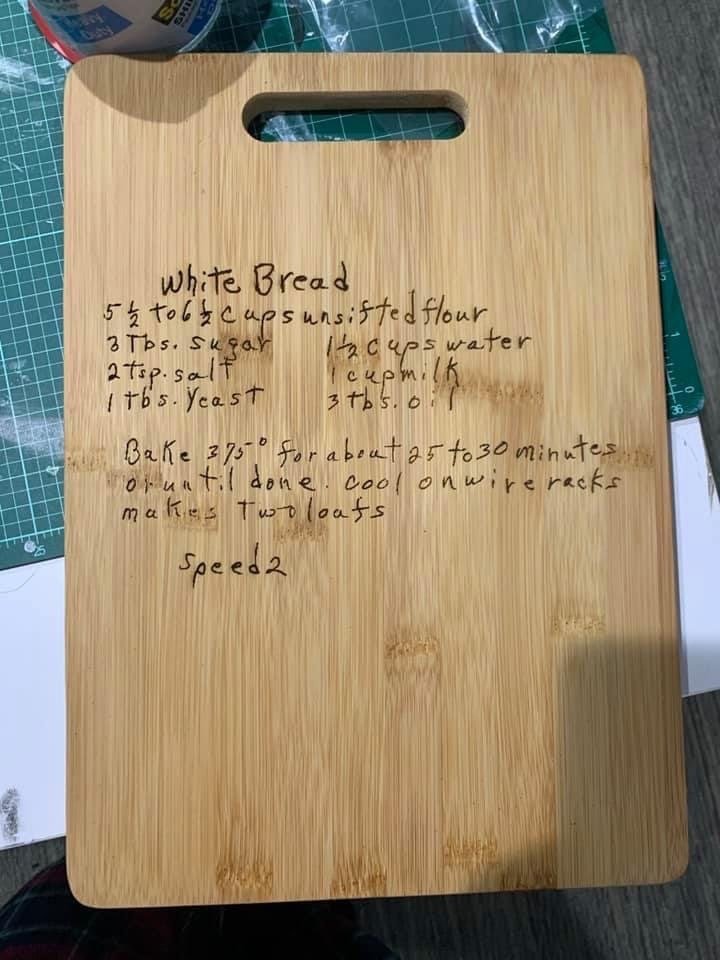 Heavy
Duty
White Bread
5 1/2 to 6 1/2 cups unsifted flour
3 Tbs. sugar 1 1/2 cups water
2 tsp. salt 1 cup milk
1 tbs. Yeast 3 tbs. oil
Bake 375° for about 25 to 30 minutes
or until done. cool on wire racks
makes Two loafs
speed 2